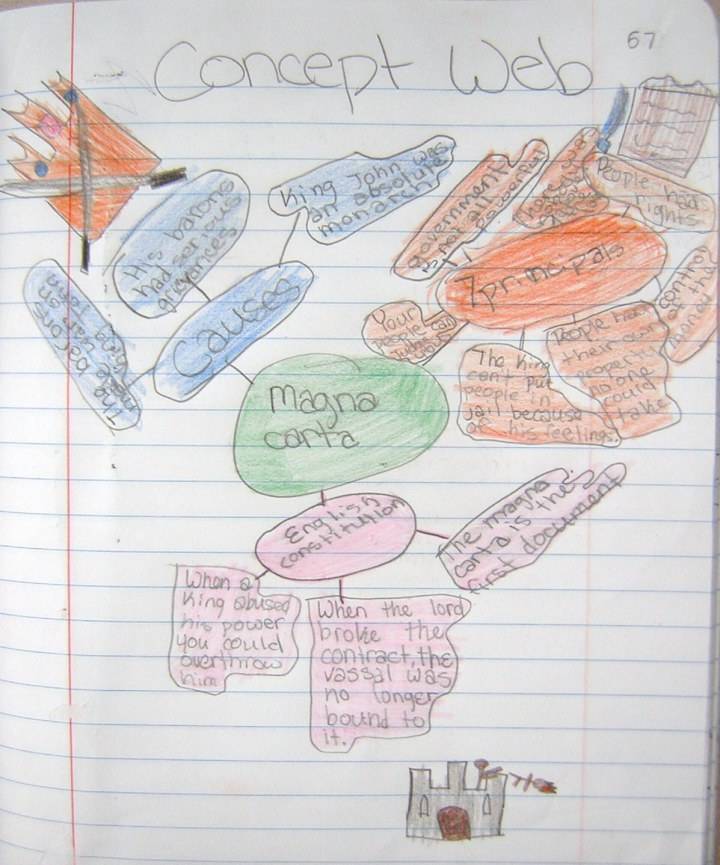 57
Concept Web
King John was
an absolute
monarch
His barons
had serious
grievences
The barons
made
King John
Causes
Magna
carta
7 principals
government
is not all
People had
rights
control
of the
money
Your
people can
judge
The King
can't put
people in
jail because
of his feelings.
People had
their own
property
no one
could
take
English
constitution
The magna
carta is the
first document
When a
King abused
his power
you could
overthrow
him
When the lord
broke the
contract, the
vassal was
no longer
bound to
it.